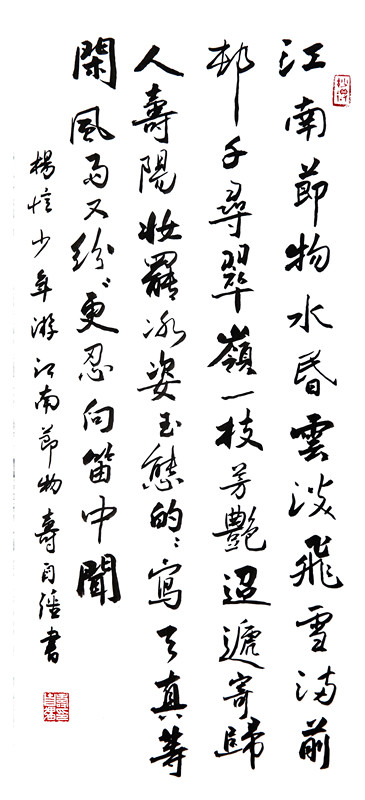 江南節物水昏雲淡飛雪滿前
邨千尋翠嶺一枝芳艷迢遞寄歸
人壽陽妝罷冰姿玉態的〻寫天真等
閑風雨又紛〻更忍向笛中聞
楊少年游江南節物壽自書